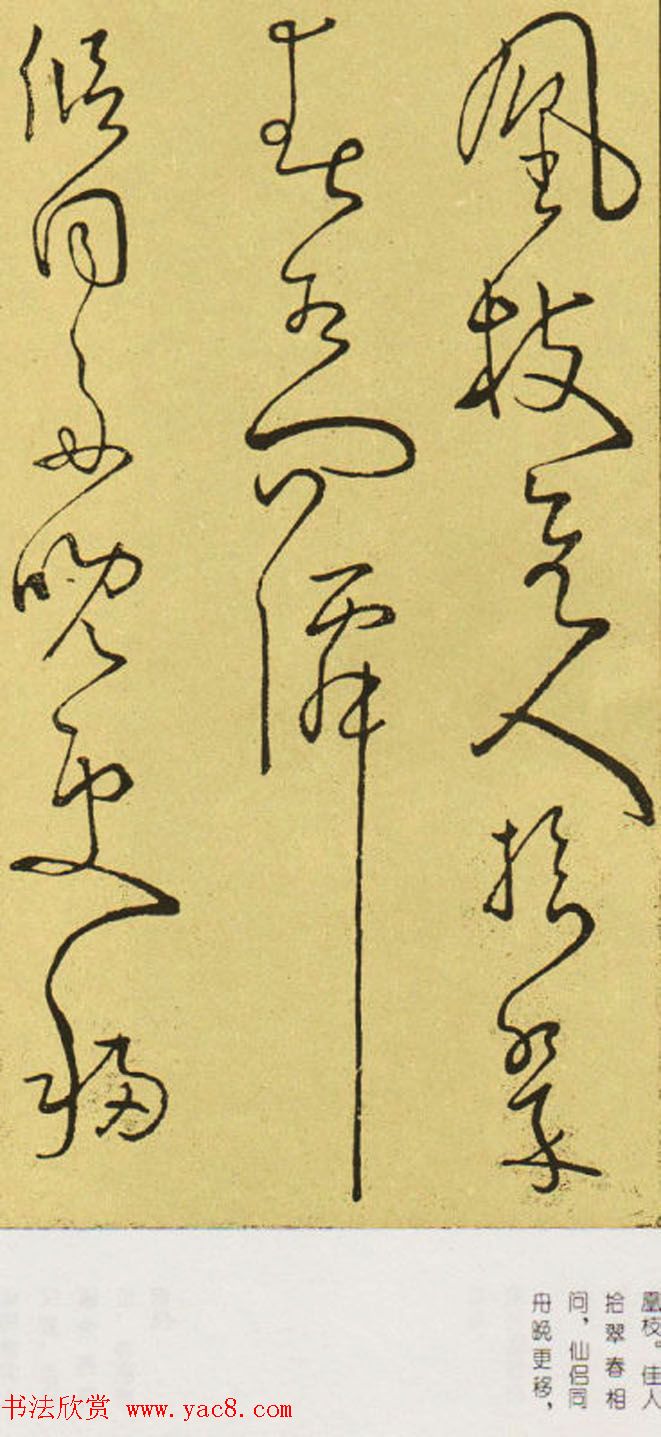 凰枝佳人拾翠
春相问僊
侣同舟晚更移
凰枝。佳人
拾翠春相
问，仙侣同
舟晚更移，
书法欣赏 www.yac8.com